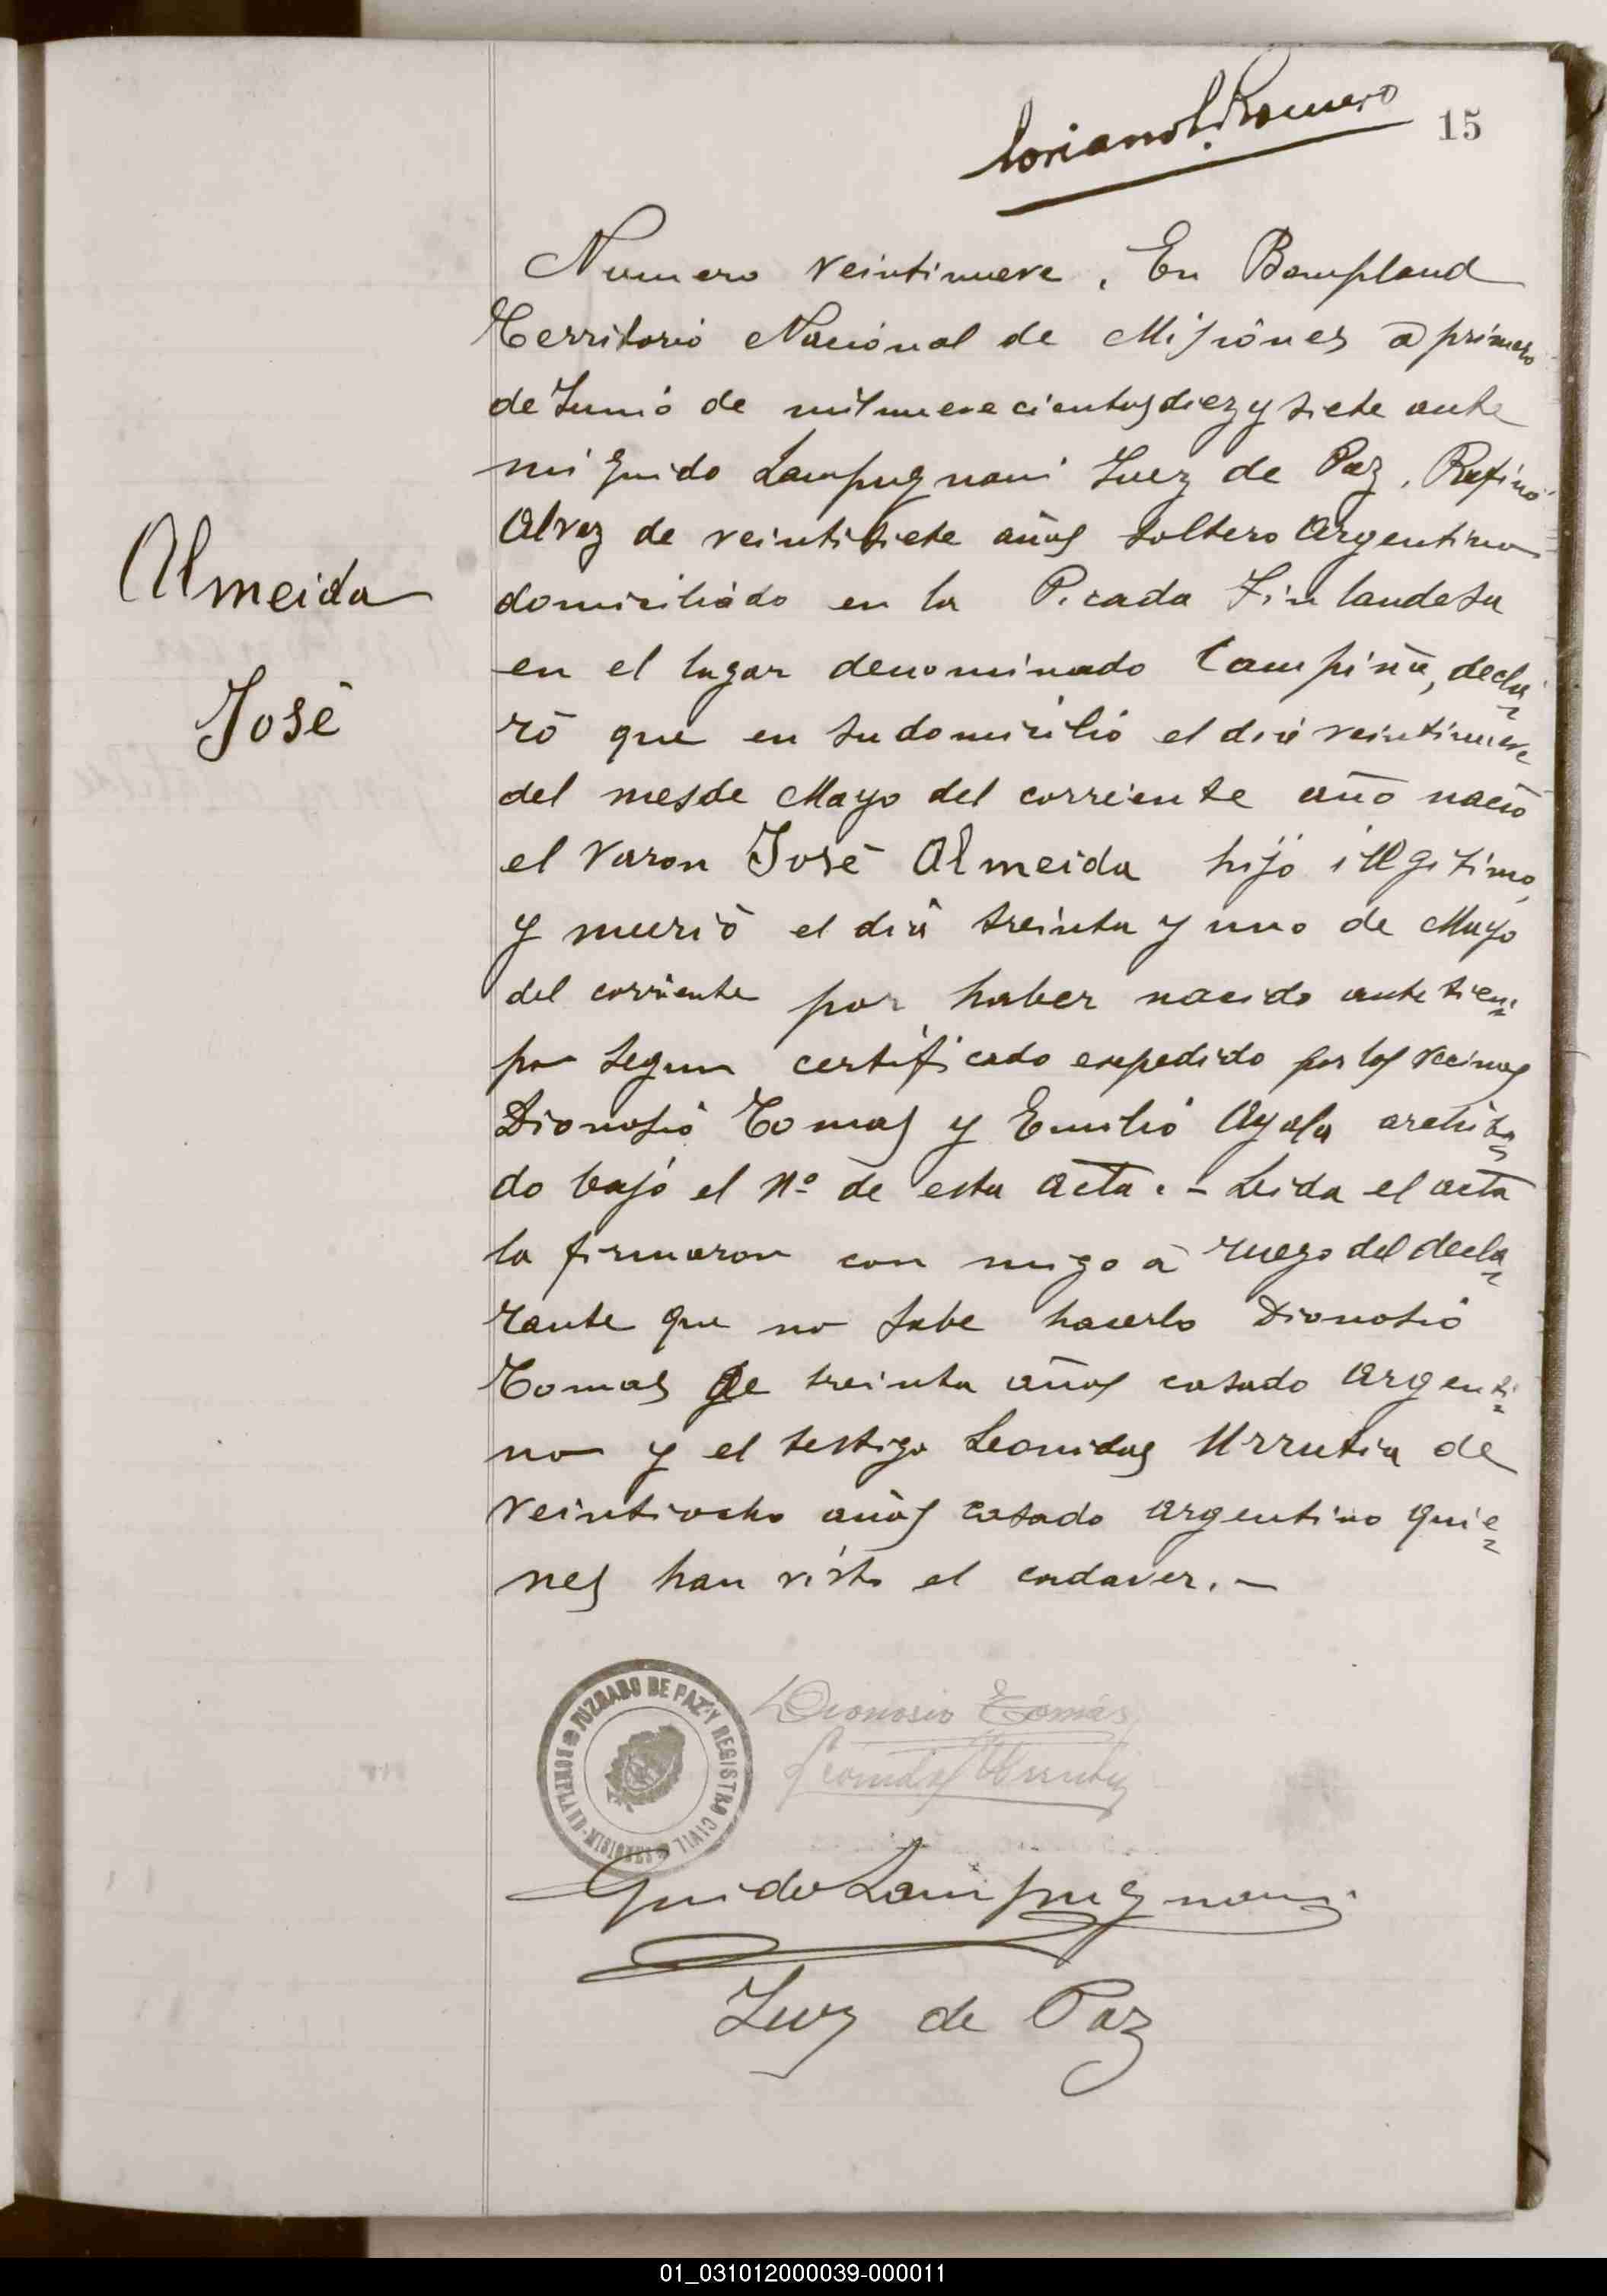 Coriano L. Romero
15
Numero veintinueve. En Bompland
Territorio Nacional de Misiónes a primero
de Junio de mil nuevecientos diez y siete ante
mi Guido Lampugnani Juez de Paz, Rufino
Alvez de veintisiete años soltero Argentino
domiciliado en la Picada Finlandesa
en el lugar denominado Campiña, decla-
ró que en su domicilio el día veintinueve
del mes de Mayo del corriente año nació
el varon José Almeida hijo illgitimo,
y murió el día treinta y uno de Mayo
del corriente por haber nacido ante tiem-
po segun certificado expedido por los vecinos
Dionosio Tomas y Emilio Ayala archiva-
do bajo el Nº de esta acta. - Leida el acta
la firmaron con migo á ruego del decla-
rante que no sabe hacerlo Dionosio
Tomas de treinta años casado Argenti-
no y el testigo Leonidas Urrutia de
veintiocho años casado argentino quie-
nes han visto el cadaver. -
Almeida
José
JUZGADO DE PAZ Y REGISTRO CIVIL
BONPLAND - MISIONES
Dionosio Tomás
Leonidas Urrutia
Guido Lampugnani
Juez de Paz
01_031012000039-000011